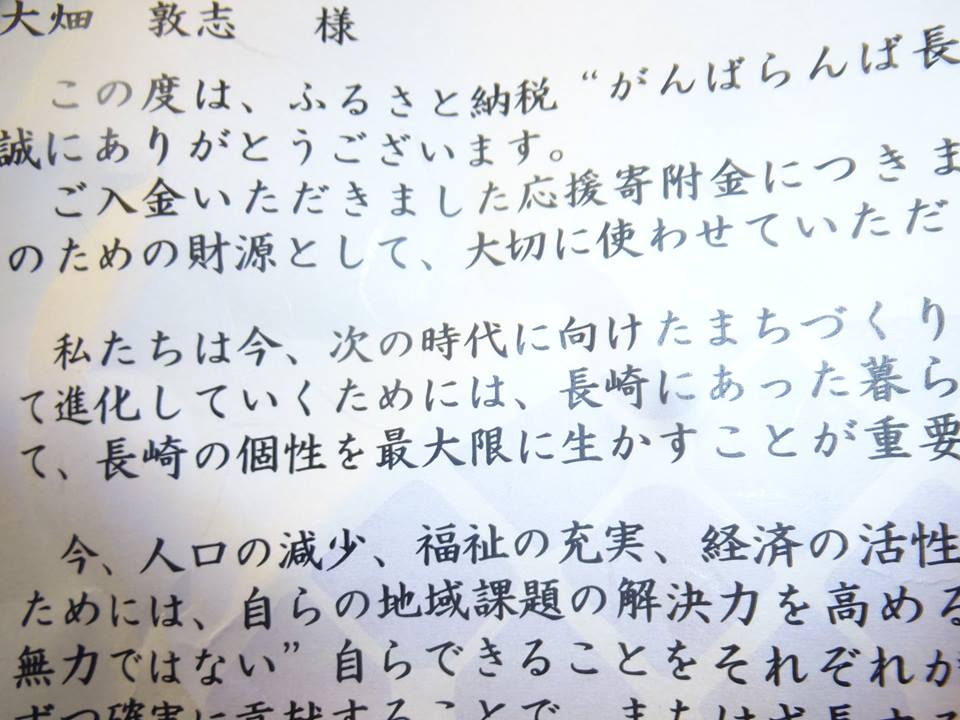 大畑 敦志 様
この度は、ふるさと納税“がんばらんば長
誠にありがとうございます。
ご入金いただきました応援寄附金につきま
のための財源として、大切に使わせていただ
私たちは今、次の時代に向けたまちづくり
て進化していくためには、長崎にあった暮ら
て、長崎の個性を最大限に生かすことが重要
今、人口の減少、福祉の充実、経済の活性
ためには、自らの地域課題の解決力を高める
無力ではない”自らできることをそれぞれが
ずつ確実に貢献することで、または